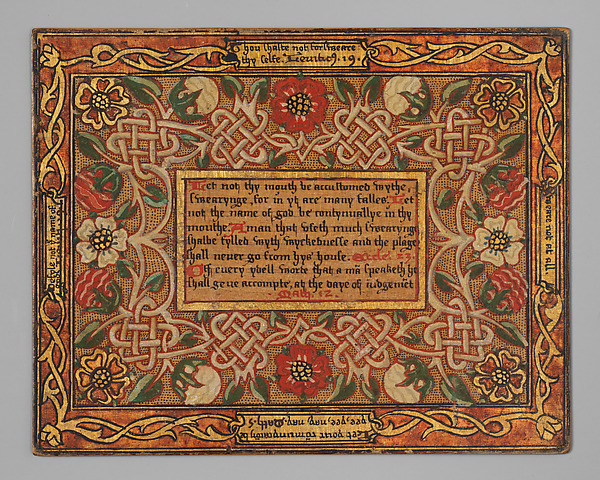 Thou shalte not forsweare
thy selfe. 19.
Let not thy mouth be accustomed wythe
swearynge, for in yt are many falles. Let
not the name of god be contynuallye in thy
mouthe. A man that vseth much swearyng
shalbe fylled wyth wyckednesse and the plage
shall neuer go from hys house. Eccle. 23.
Off euery ydell worte that a mā speaketh he
shall geue accompte, at the daye of iudgemēt
Math. 12.
not y name of
sweare not at all
Let your be
yee yee nay nay. Math. 5